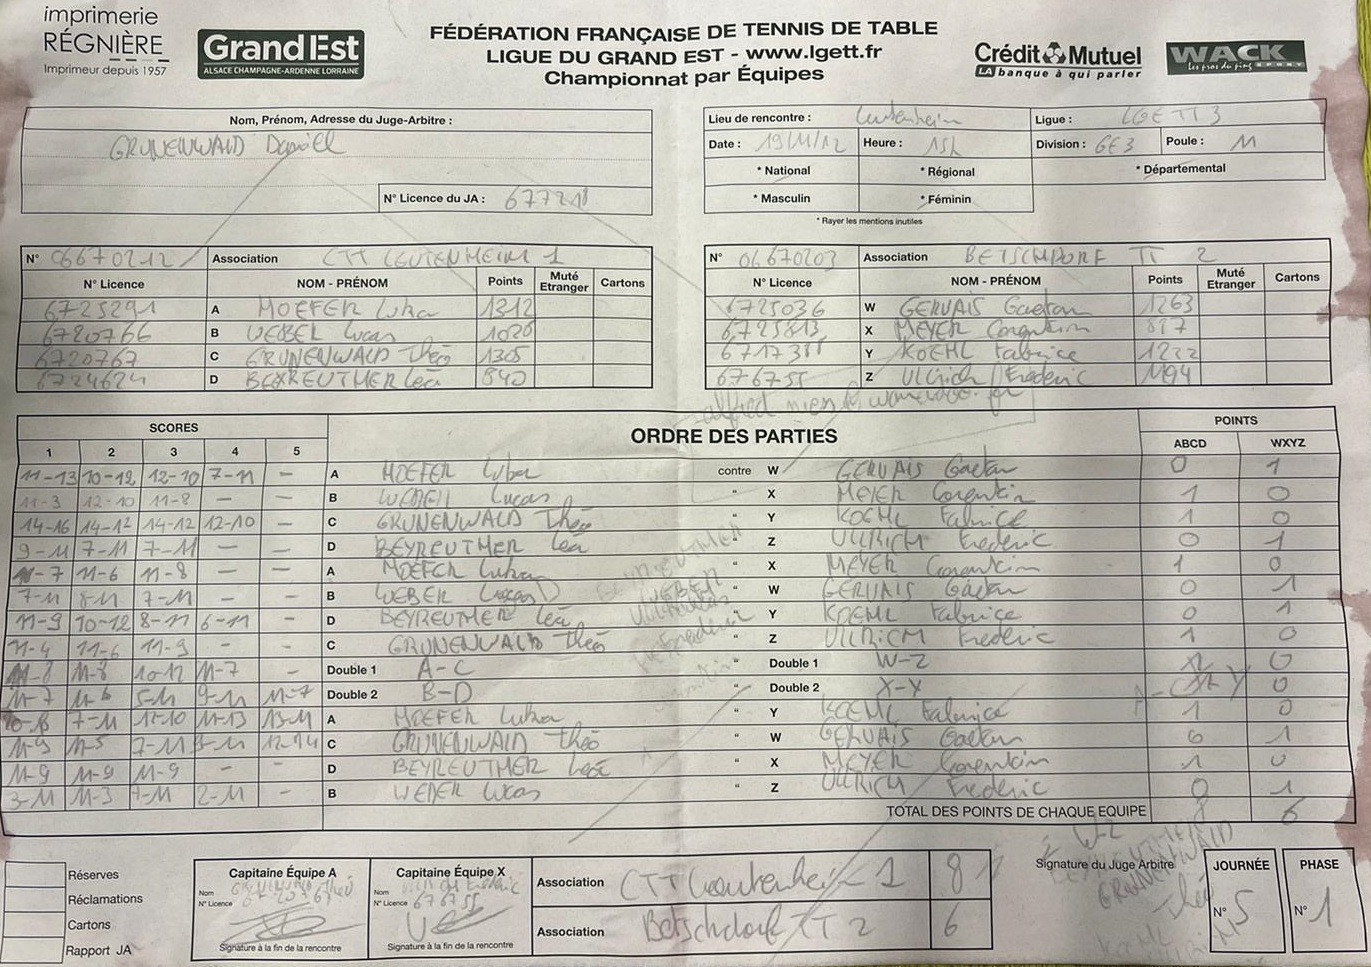 imprimerie
RÉGNIÈRE
Imprimeur depuis 1957
GrandEst
ALSACE CHAMPAGNE-ARDENNE LORRAINE
FÉDÉRATION FRANÇAISE DE TENNIS DE TABLE
LIGUE DU GRAND EST - www.lgett.fr
Championnat par Équipes
Crédit Mutuel
LA banque à qui parler
WACK
Les pros du ping SPORT
Nom, Prénom, Adresse du Juge-Arbitre :
GRUNENWALD Daniel
N° Licence du JA :
Lieu de rencontre : Leutenheim Ligue : LGETT 3
Date : Heure : 15h Division : GE3 Poule : 11
* National * Régional * Départemental
* Masculin * Féminin
* Rayer les mentions inutiles
N° 06670212 Association CTT LEUTENHEIM 1
N° Licence NOM - PRÉNOM Points Muté Etranger Cartons
6725291 A HOEFER Luka 1312
6720766 B WEBER Lucas 1020
6720767 C GRUNENWALD Théo 1305
6724624 D BEYREUTHER Léa 840
N° 06670203 Association BETSCHDORF TT 2
N° Licence NOM - PRÉNOM Points Muté Etranger Cartons
6725036 W GERVAIS Gaetan 1263
6725813 X MEYER Corentin
Y KOEHL Fabrice 1222
676755 Z ULLRICH Frederic 1194
SCORES ORDRE DES PARTIES POINTS
1 2 3 4 5 ABCD WXYZ
11-13 10-12 12-10 7-11 - A HOEFER Luka contre W GERVAIS Gaetan 0 1
11-3 12-10 11-8 - - B WEBER Lucas " X MEYER Corentin 1 0
14-16 14-12 14-12 12-10 - C GRUNENWALD Théo " Y KOEHL Fabrice 1 0
9-11 7-11 7-11 - - D BEYREUTHER Léa " Z ULLRICH Frederic 0 1
11-7 11-6 11-8 A HOEFER Luka " X MEYER Corentin 1 0
7-11 8-11 7-11 - - B WEBER Lucas " W GERVAIS Gaetan 0 1
11-9 10-12 8-11 6-11 - D BEYREUTHER Léa " Y KOEHL Fabrice 0 1
11-4 11-6 11-9 - - C GRUNENWALD Théo " Z ULLRICH Frederic 1 0
11-8 11-8 10-12 11-7 - Double 1 A-C " Double 1 W-Z 0
11-7 11-6 5-11 9-11 11-7 Double 2 B-D " Double 2 X-Y 0
7-11 12-10 11-13 13-11 A HOEFER Luka " Y KOEHL Fabrice 1 0
11-9 11-5 7-11 12-14 C GRUNENWALD Théo " W GERVAIS Gaetan 0 1
11-9 11-9 11-9 - - D BEYREUTHER Léa " X MEYER Corentin 1 0
3-11 11-3 7-11 2-11 - B WEBER Lucas " Z ULLRICH Frederic 0 1
TOTAL DES POINTS DE CHAQUE EQUIPE 8 6
Réserves
Réclamations
Cartons
Rapport JA
Capitaine Équipe A
Nom
N° Licence
Signature à la fin de la rencontre
Capitaine Équipe X
Nom
N° Licence 676755
Signature à la fin de la rencontre
Association CTT Leutenheim 1 8
Association Betschdorf TT 2 6
Signature du Juge Arbitre
GRUNENWALD
Théo
JOURNÉE
N° 5
PHASE
N° 1